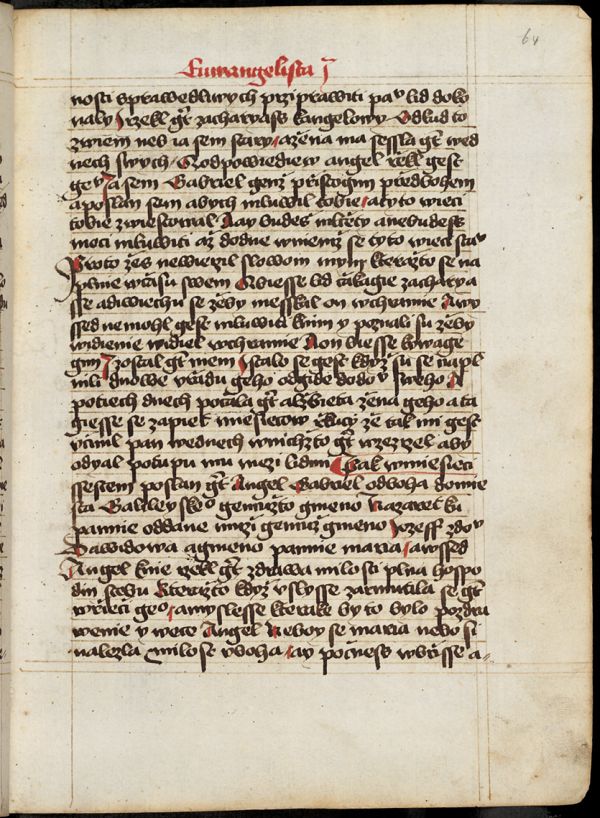 64
Euwangelista j
nosti sprawedliwych prziprawiti paᵘ lid doko
naly Irzekl gt̃ zacharyass kangelowy Odkud to
zwiem neb ia sem stary azena ma sessla gt̃ wed
nech swych Aodpowiediew angel rzekl gest
geᵘ Ja sem Gabriel genz przistogim przedbohem
aposlan sem abych mluwil tobie atyto wieci
tobie zwiestowal Aay budes mlczety anebudess
moci mluwiti az dodne wniemz se tyto wieci staᵘ
Proto zes newierzil slowom mym kterazto se na
plnie wczasu swem Abiesse lid czakagie zacharya
sse adiwiechu se zeby messkal on wchramie Awy
ssed nemohl gest mluwiti knim y poznali su zeby
widienie widiel wchramie Aon biesse kywage
gim Izostal gt̃ niem Istalo se gest kdyz su se napl
nili dnowe vrzadu geho odgide dodoᵘ sweho A
potiech dnech poczala gt̃ alzbieta zena geho ata
giesse se zapiet miesiecow rzkuci ze tak mi gest
vczinil pan wednech wnichzto gt̃ wzezrzel aby
odyal potupu mu mezi lidmi Tak wmiesieci
ssestem poslan gt̃ Angel Gabriel odboha domie
sta Galileyskeᵒ gemuzto gmeno Nazaret ku
pannie oddane muzi gemuz gmeno Jozeff zdoᵘ
Dawidowa agmeno pannie maria Awssed
Angel knie rzekl gt̃ zdrawa milosti plna hospo
din stebu Kterazto kdyz vslysse zarmutila se gt̃
wrzieci geᵒ amyslesse kterake by to bylo pozdra
wenie y wece Angel Neboy se maria nebo si
nalezla milost vboha ay poczness wbrzisse a